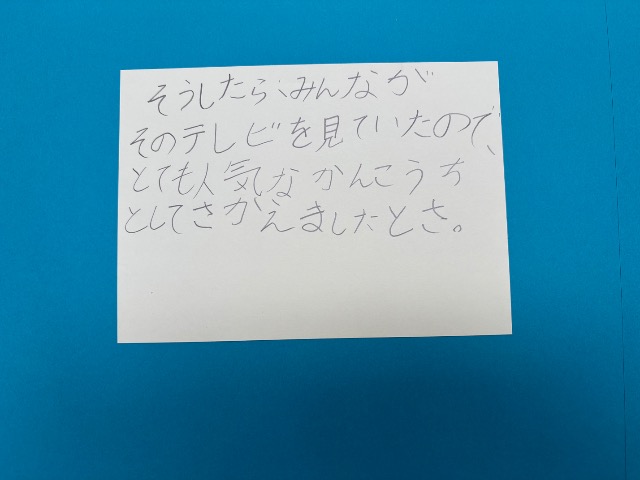 そうしたら、みんなが
そのテレビを見ていたので、
とても人気なかんこうち
としてさかえましたとさ。